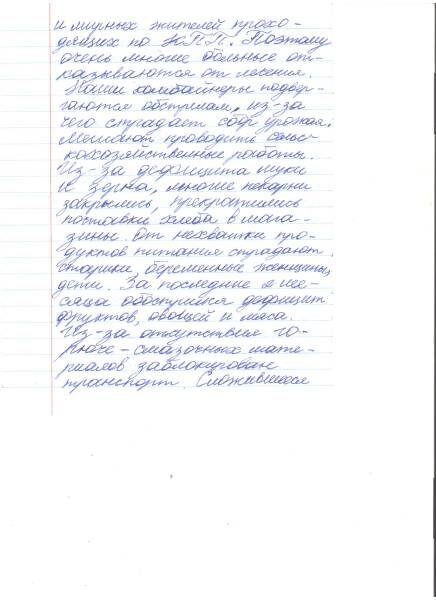 и мирных жителей прохо-
дящих по КПП. Поэтому
очень многие больные от-
казываются от лечения.
Наши комбайнеры подвер-
гаются обстрелам, из-за
чего страдает сбор урожая.
Мешают проводить сельс-
кохозяйственные работы.
Из-за дефицита муки
и зерна, многие пекарни
закрылись, прекратились
поставки хлеба в мага-
зины. От нехватки про-
дуктов питания страдают
старики, беременные женщины,
дети. За последние 2 ме-
сяца обострился дефицит
фруктов, овощей и мяса.
Из-за отсутствия го-
рюче-смазочных мате-
риалов заблокирован
транспорт. Сложившееся